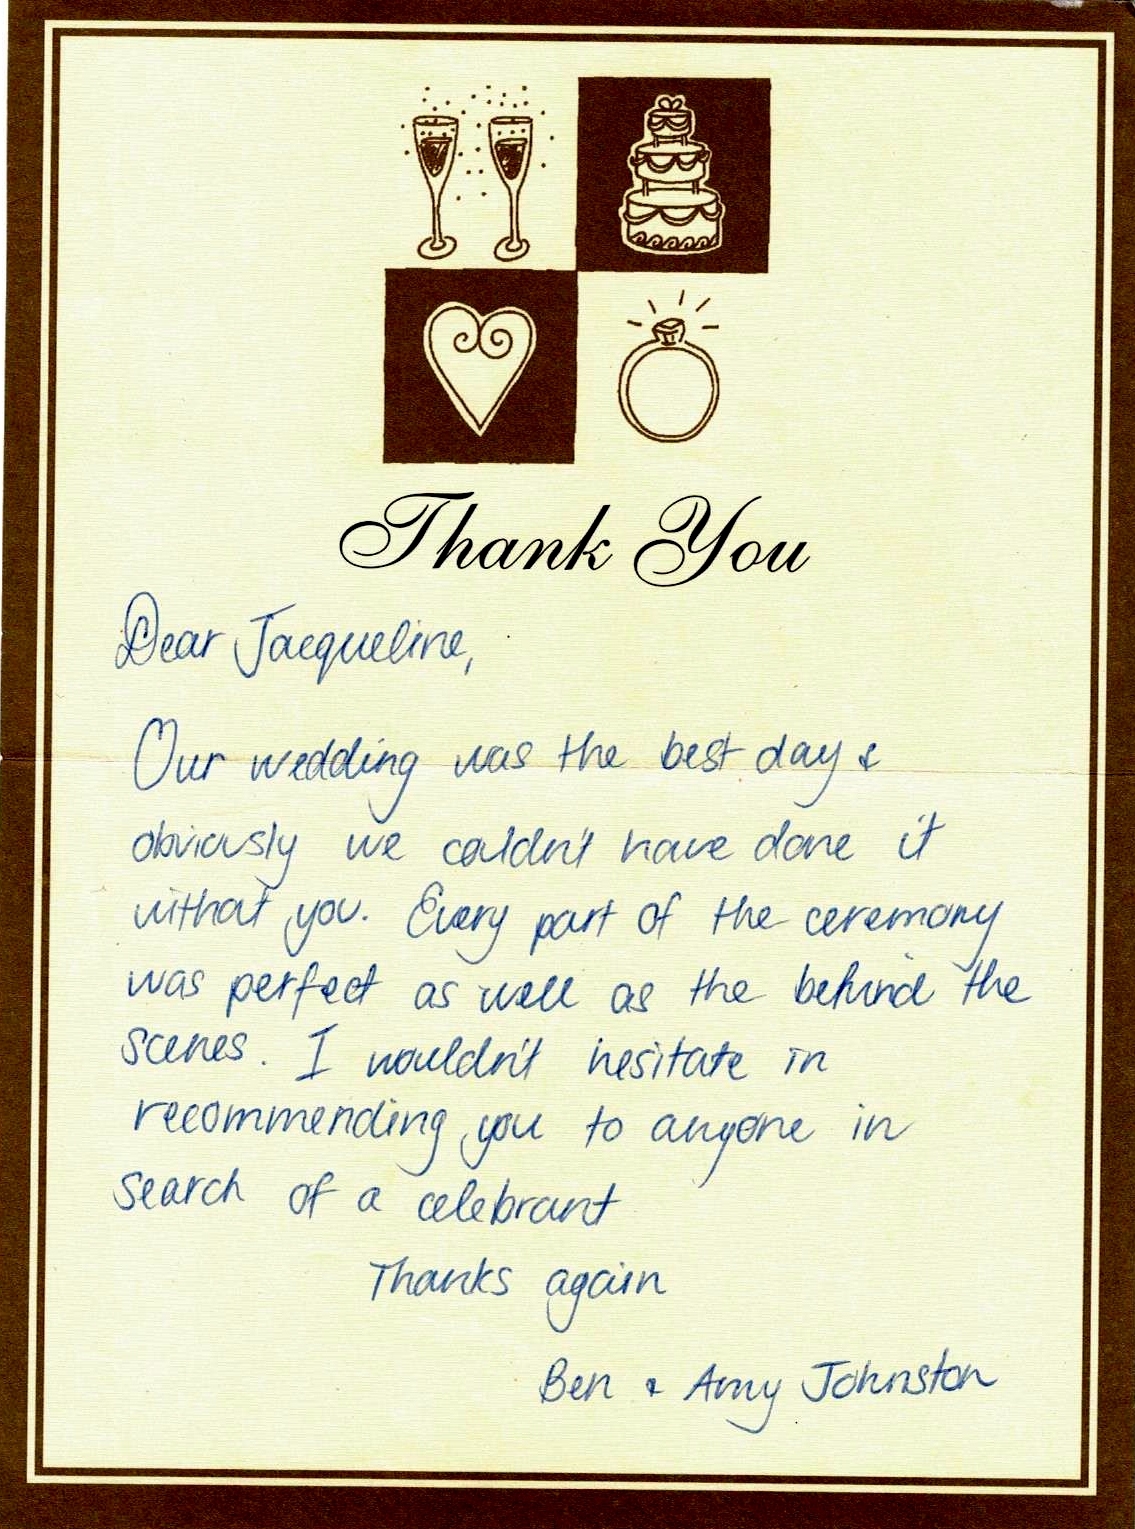 Thank You
Dear Jacqueline,
Our wedding was the best day &
obviously we couldn't have done it
without you. Every part of the ceremony
was perfect as well as the behind the
scenes. I wouldn't hesitate in
recommending you to anyone in
search of a celebrant
Thanks again
Ben & Amy Johnston